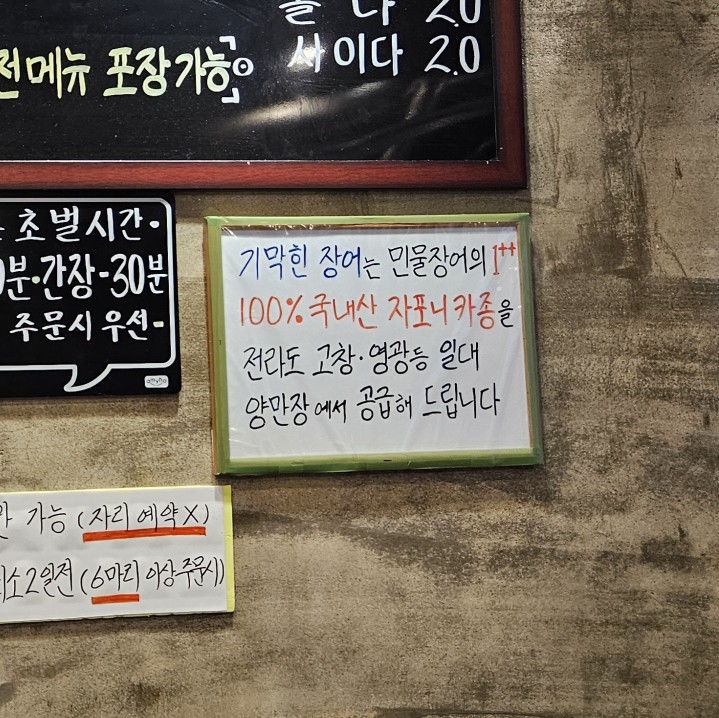 콜 라 2.0
사이다 2.0
전메뉴 포장가능
초벌시간·
분·간장-30분
주문시 우선-
기막힌 장어는 민물장어의 1++
100% 국내산 자포니카종을
전라도 고창·영광등 일대
양만장에서 공급해 드립니다
가능 (자리 예약X)
2일전 (6마리 이상주문시)